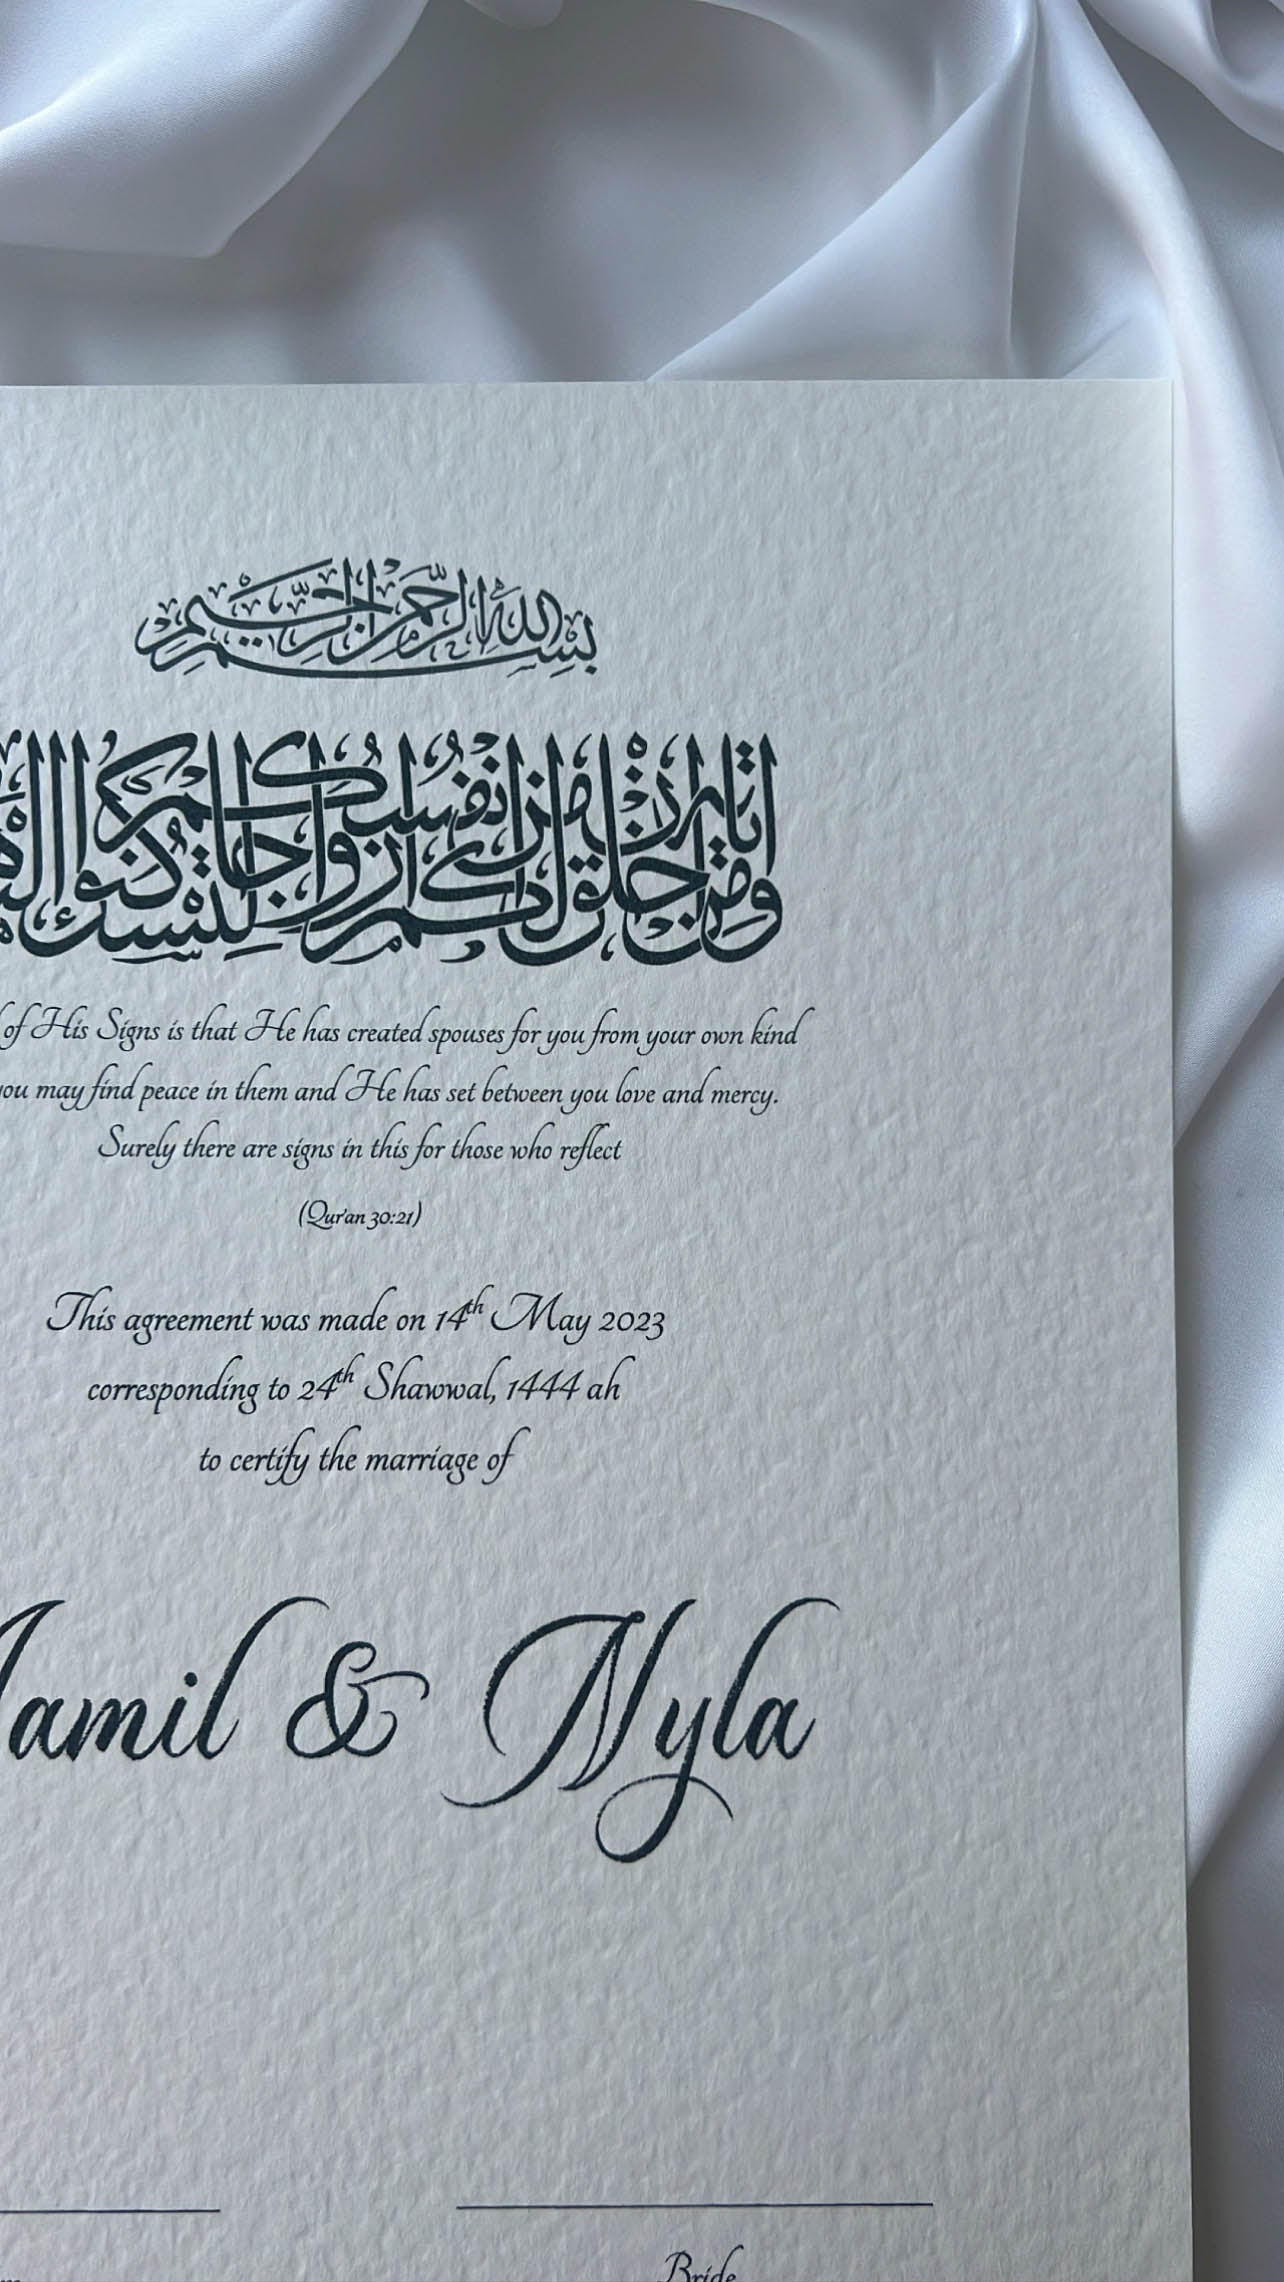 بسم الله الرحمن الرحيم
ومن آياته أن خلق لكم من أنفسكم أزواجا لتسكنوا إليها
of His Signs is that He has created spouses for you from your own kind
you may find peace in them and He has set between you love and mercy.
Surely there are signs in this for those who reflect
(Qur'an 30:21)
This agreement was made on 14th May 2023
corresponding to 24th Shawwal, 1444 ah
to certify the marriage of
Jamil & Nyla
Bride